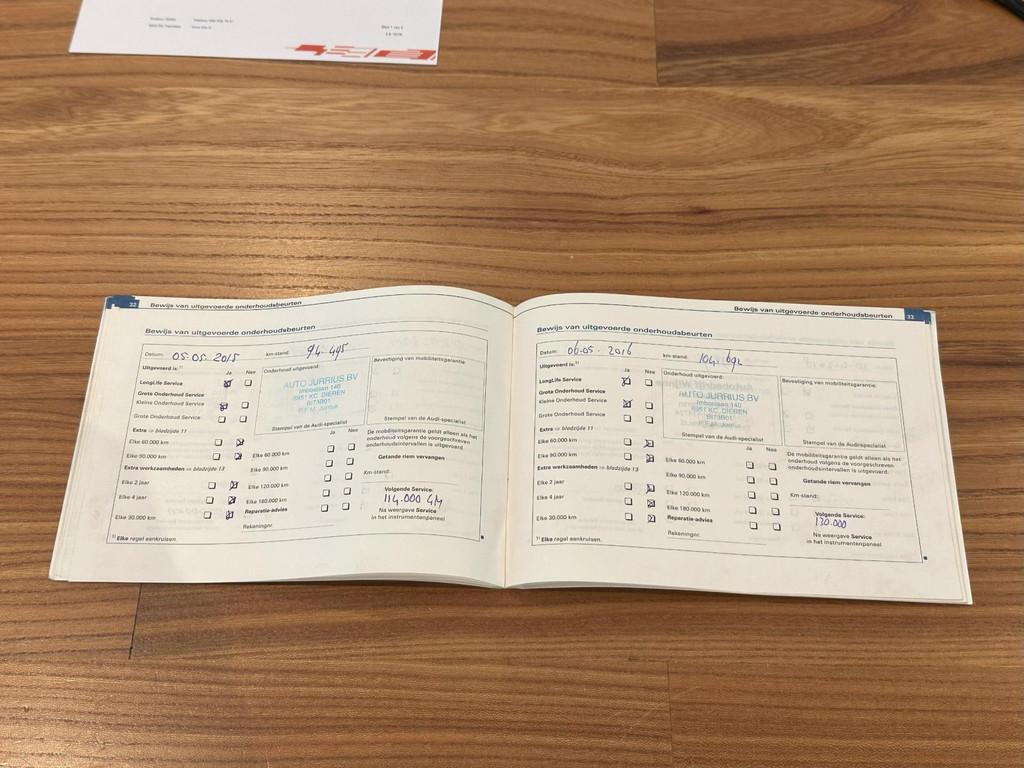 Blad 1 van 3
32 Bewijs van uitgevoerde onderhoudsbeurten
Bewijs van uitgevoerde onderhoudsbeurten
Datum: 05.05.2015 km-stand: 94.445
Uitgevoerd is:¹⁾
Ja Nee
LongLife Service
Grote Onderhoud Service
Kleine Onderhoud Service
Grote Onderhoud Service
Extra ⇨ bladzijde 11
Elke 60.000 km
Elke 90.000 km
Extra werkzaamheden ⇨ bladzijde 13
Elke 2 jaar
Elke 4 jaar
Elke 30.000 km
¹⁾ Elke regel aankruisen.
Onderhoud uitgevoerd:
AUTO JURRIUS BV
Imboslaan 140
6951 KC DIEREN
BIT3B01
P.F.M. Jurrius
Stempel van de Audi-specialist
Ja Nee
Elke 60.000 km
Elke 90.000 km
Elke 120.000 km
Elke 180.000 km
Reparatie-advies
Rekeningnr.
Bevestiging van mobiliteitsgarantie:
Stempel van de Audi-specialist
De mobiliteitsgarantie geldt alleen als het
onderhoud volgens de voorgeschreven
onderhoudsintervallen is uitgevoerd.
Getande riem vervangen
Km-stand:
Volgende Service:
114.000 KM
Na weergave Service
in het instrumentenpaneel
Bewijs van uitgevoerde onderhoudsbeurten 33
Bewijs van uitgevoerde onderhoudsbeurten
Datum: 06.05.2016 km-stand: 104.692
Uitgevoerd is:¹⁾
Ja Nee
LongLife Service
Grote Onderhoud Service
Kleine Onderhoud Service
Grote Onderhoud Service
Extra ⇨ bladzijde 11
Elke 60.000 km
Elke 90.000 km
Extra werkzaamheden ⇨ bladzijde 13
Elke 2 jaar
Elke 4 jaar
Elke 30.000 km
¹⁾ Elke regel aankruisen.
Onderhoud uitgevoerd:
AUTO JURRIUS BV
Imboslaan 140
6951 KC DIEREN
BIT3B01
P.F.M. Jurrius
Stempel van de Audi-specialist
Ja Nee
Elke 60.000 km
Elke 90.000 km
Elke 120.000 km
Elke 180.000 km
Reparatie-advies
Rekeningnr.
Bevestiging van mobiliteitsgarantie:
Stempel van de Audi-specialist
De mobiliteitsgarantie geldt alleen als het
onderhoud volgens de voorgeschreven
onderhoudsintervallen is uitgevoerd.
Getande riem vervangen
Km-stand:
Volgende Service:
130.000
Na weergave Service
in het instrumentenpaneel